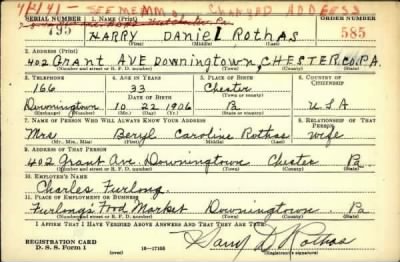 4/1/41 - SEE MEMO. CHANGED ADDRESS
SERIAL NUMBER 1. NAME (Print) ORDER NUMBER
795 HARRY DANIEL ROTHAS 585
(First) (Middle) (Last)
2. ADDRESS (Print)
402 GRANT AVE DOWNINGTOWN, CHESTER CO. PA.
(Number and street or R. F. D. number) (Town) (County) (State)
3. TELEPHONE 4. AGE IN YEARS 5. PLACE OF BIRTH 6. COUNTRY OF CITIZENSHIP
166 33 Chester
(Town or county)
Downingtown 10 22 1906 Pa U.S.A
(Exchange) (Number) (Mo.) (Day) (Yr.) (State or country)
7. NAME OF PERSON WHO WILL ALWAYS KNOW YOUR ADDRESS 8. RELATIONSHIP OF THAT PERSON
Mrs Beryl Caroline Rothas wife
(Mr., Mrs., Miss) (First) (Middle) (Last)
9. ADDRESS OF THAT PERSON
402 Grant Ave. Downingtown Chester Pa
(Number and street or R. F. D. number) (Town) (County) (State)
10. EMPLOYER'S NAME
Charles Furlong
11. PLACE OF EMPLOYMENT OR BUSINESS
Furlong's Food Market Downingtown Pa
(Number and street or R. F. D. number) (Town) (County) (State)
I AFFIRM THAT I HAVE VERIFIED ABOVE ANSWERS AND THAT THEY ARE TRUE.
REGISTRATION CARD
D. S. S. Form 1 16-17105 Harry D Rothas
(Registrant's signature)